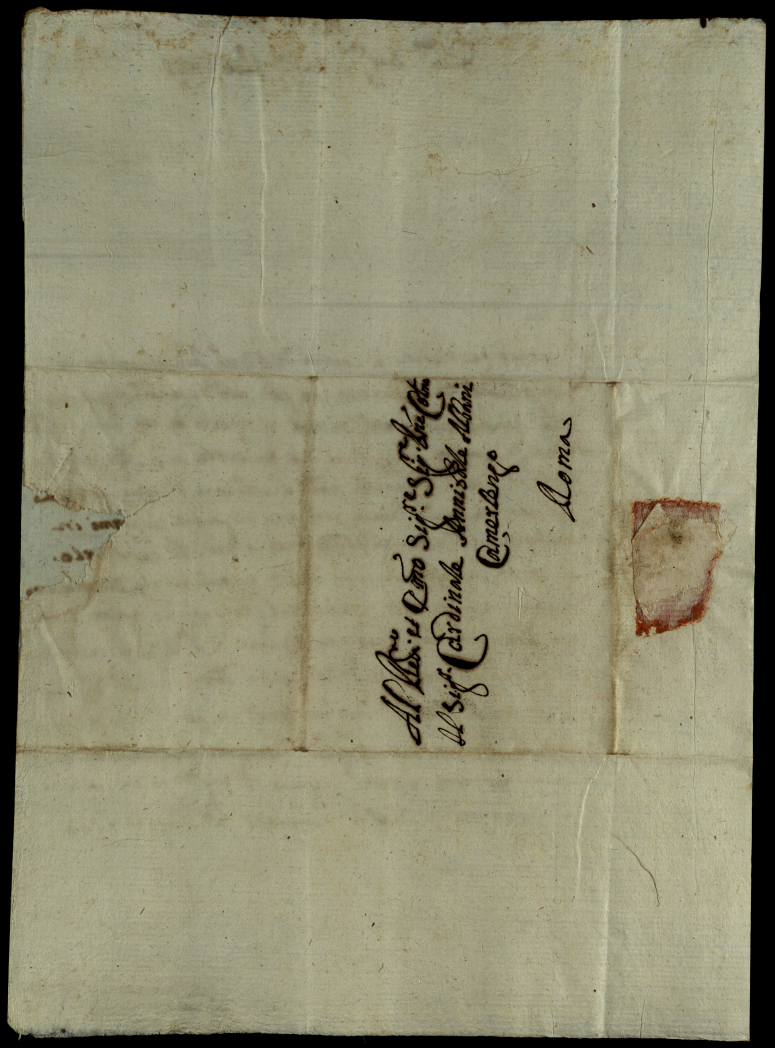 All' Rev.mo et Em̃o Sig.re Sig.re P̃ne Col.mo
Il Sig.r Cardinale Annibale Albani
Camerlengo
Roma